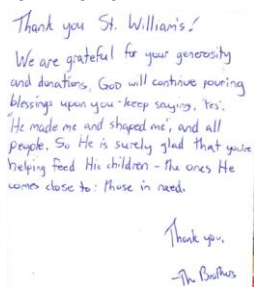 Thank you St. William's!
We are grateful for your generosity
and donations, GOD will continue pouring
blessings upon you - keep saying, 'Yes'.
"He made me and shaped me", and all
people. So He is surely glad that you're
helping feed His children - the ones He
comes close to: those in need.
Thank you.
-The Brothers